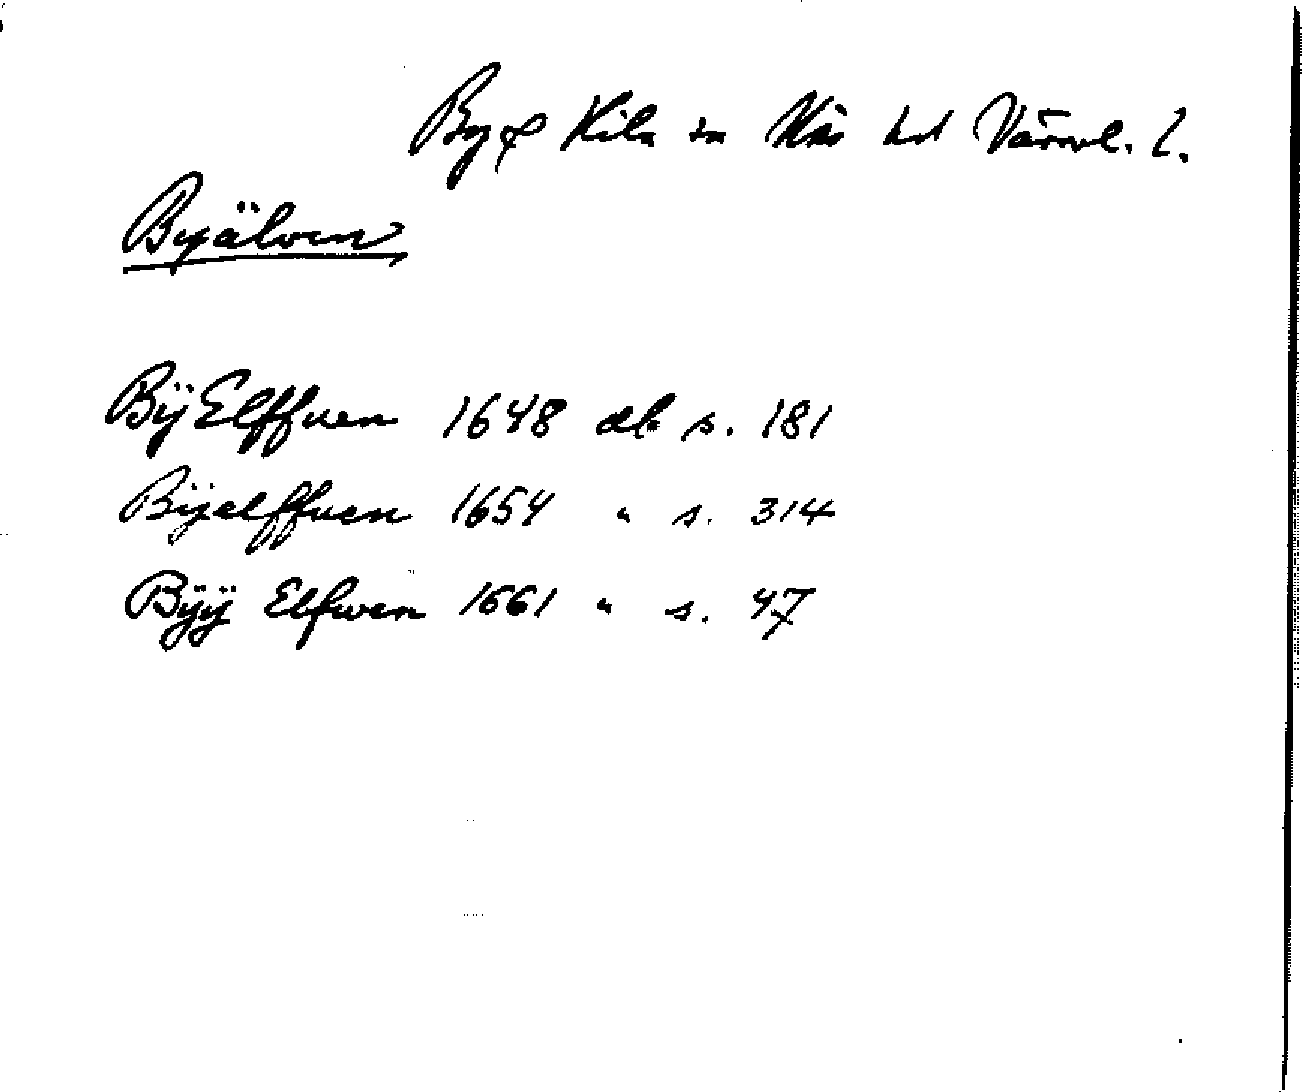 By & Kila sn Näs hd Värml. l.
Byälven
BÿElffuen 1648 db s. 181
Bÿelffuen 1654 " s. 314
Bÿÿ Elfwen 1661 " s. 47